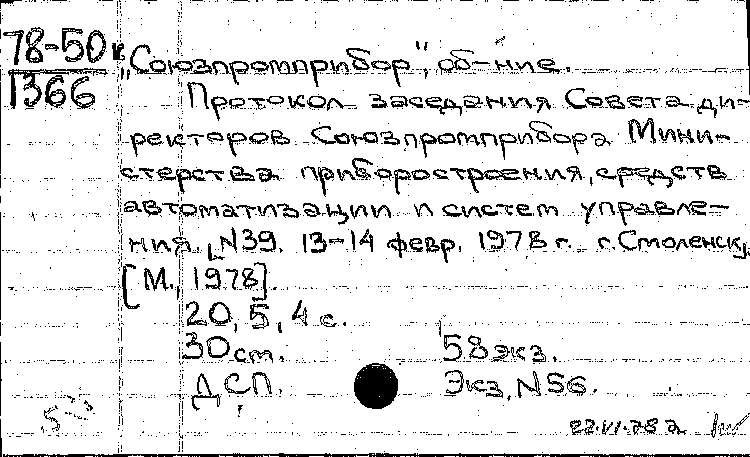 78-50к
1366
"Союзпромприбор", об-ние.
Протокол заседания Совета ди-
ректоров Союзпромприбора Мини-
стерства приборостроения, средств
автоматизации и систем управле-
ния, N39. 13-14 февр. 1978 г. г. Смоленск,
[М., 1978].
20, 5, 4 с.
30 см. 58 экз.
ДСП. Экз. N56.
22.VI.78